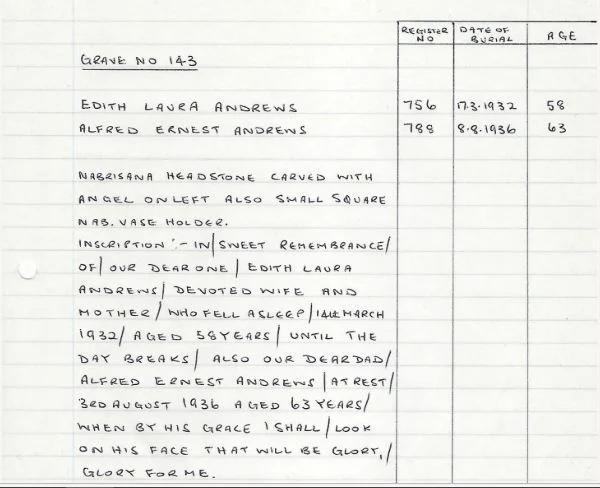 REGISTER NO DATE OF BURIAL AGE
GRAVE NO 143
EDITH LAURA ANDREWS 756 17.3.1932 58
ALFRED ERNEST ANDREWS 788 8.8.1936 63
NABRISANA HEADSTONE CARVED WITH
ANGEL ON LEFT ALSO SMALL SQUARE
NAB. VASE HOLDER.
INSCRIPTION :- IN/SWEET REMEMBRANCE/
OF/ OUR DEAR ONE/ EDITH LAURA
ANDREWS/ DEVOTED WIFE AND
MOTHER/ WHO FELL ASLEEP/14TH MARCH
1932/ AGED 58 YEARS/ UNTIL THE
DAY BREAKS/ ALSO OUR DEAR DAD/
ALFRED ERNEST ANDREWS/AT REST/
3RD AUGUST 1936 AGED 63 YEARS/
WHEN BY HIS GRACE I SHALL/LOOK
ON HIS FACE THAT WILL BE GLORY,/
GLORY FOR ME.